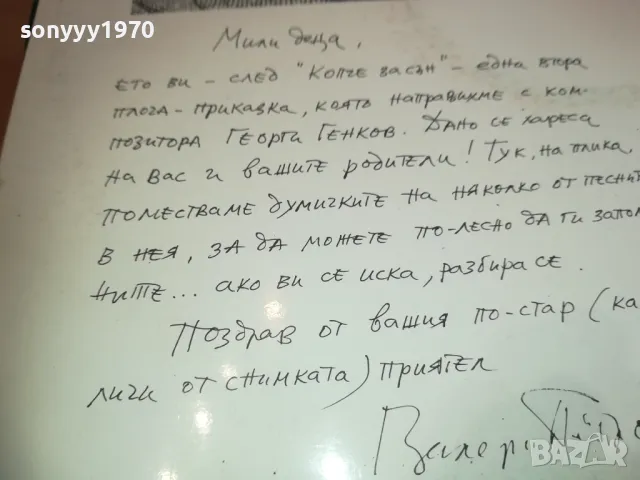 sonyyy1970
Мили деца,
ето ви - след "Копче за сън" - една втора
плоча - приказка, която направихме с ком-
позитора Георги Генков. Дано се хареса
на вас и вашите родители! Тук, на плика,
поместваме думичките на няколко от песнит
в нея, за да можете по-лесно да ги запом
ните... ако ви се иска, разбира се.
Поздрав от вашия по-стар (ка
личи от снимката) приятел
Валери
BAZAR
bg